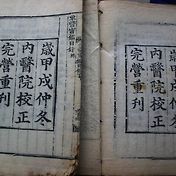 歲甲戌仲冬
內醫院校正
完營重刊
東醫寶鑑目錄
歲甲戌仲冬
內醫院校正
完營重刊